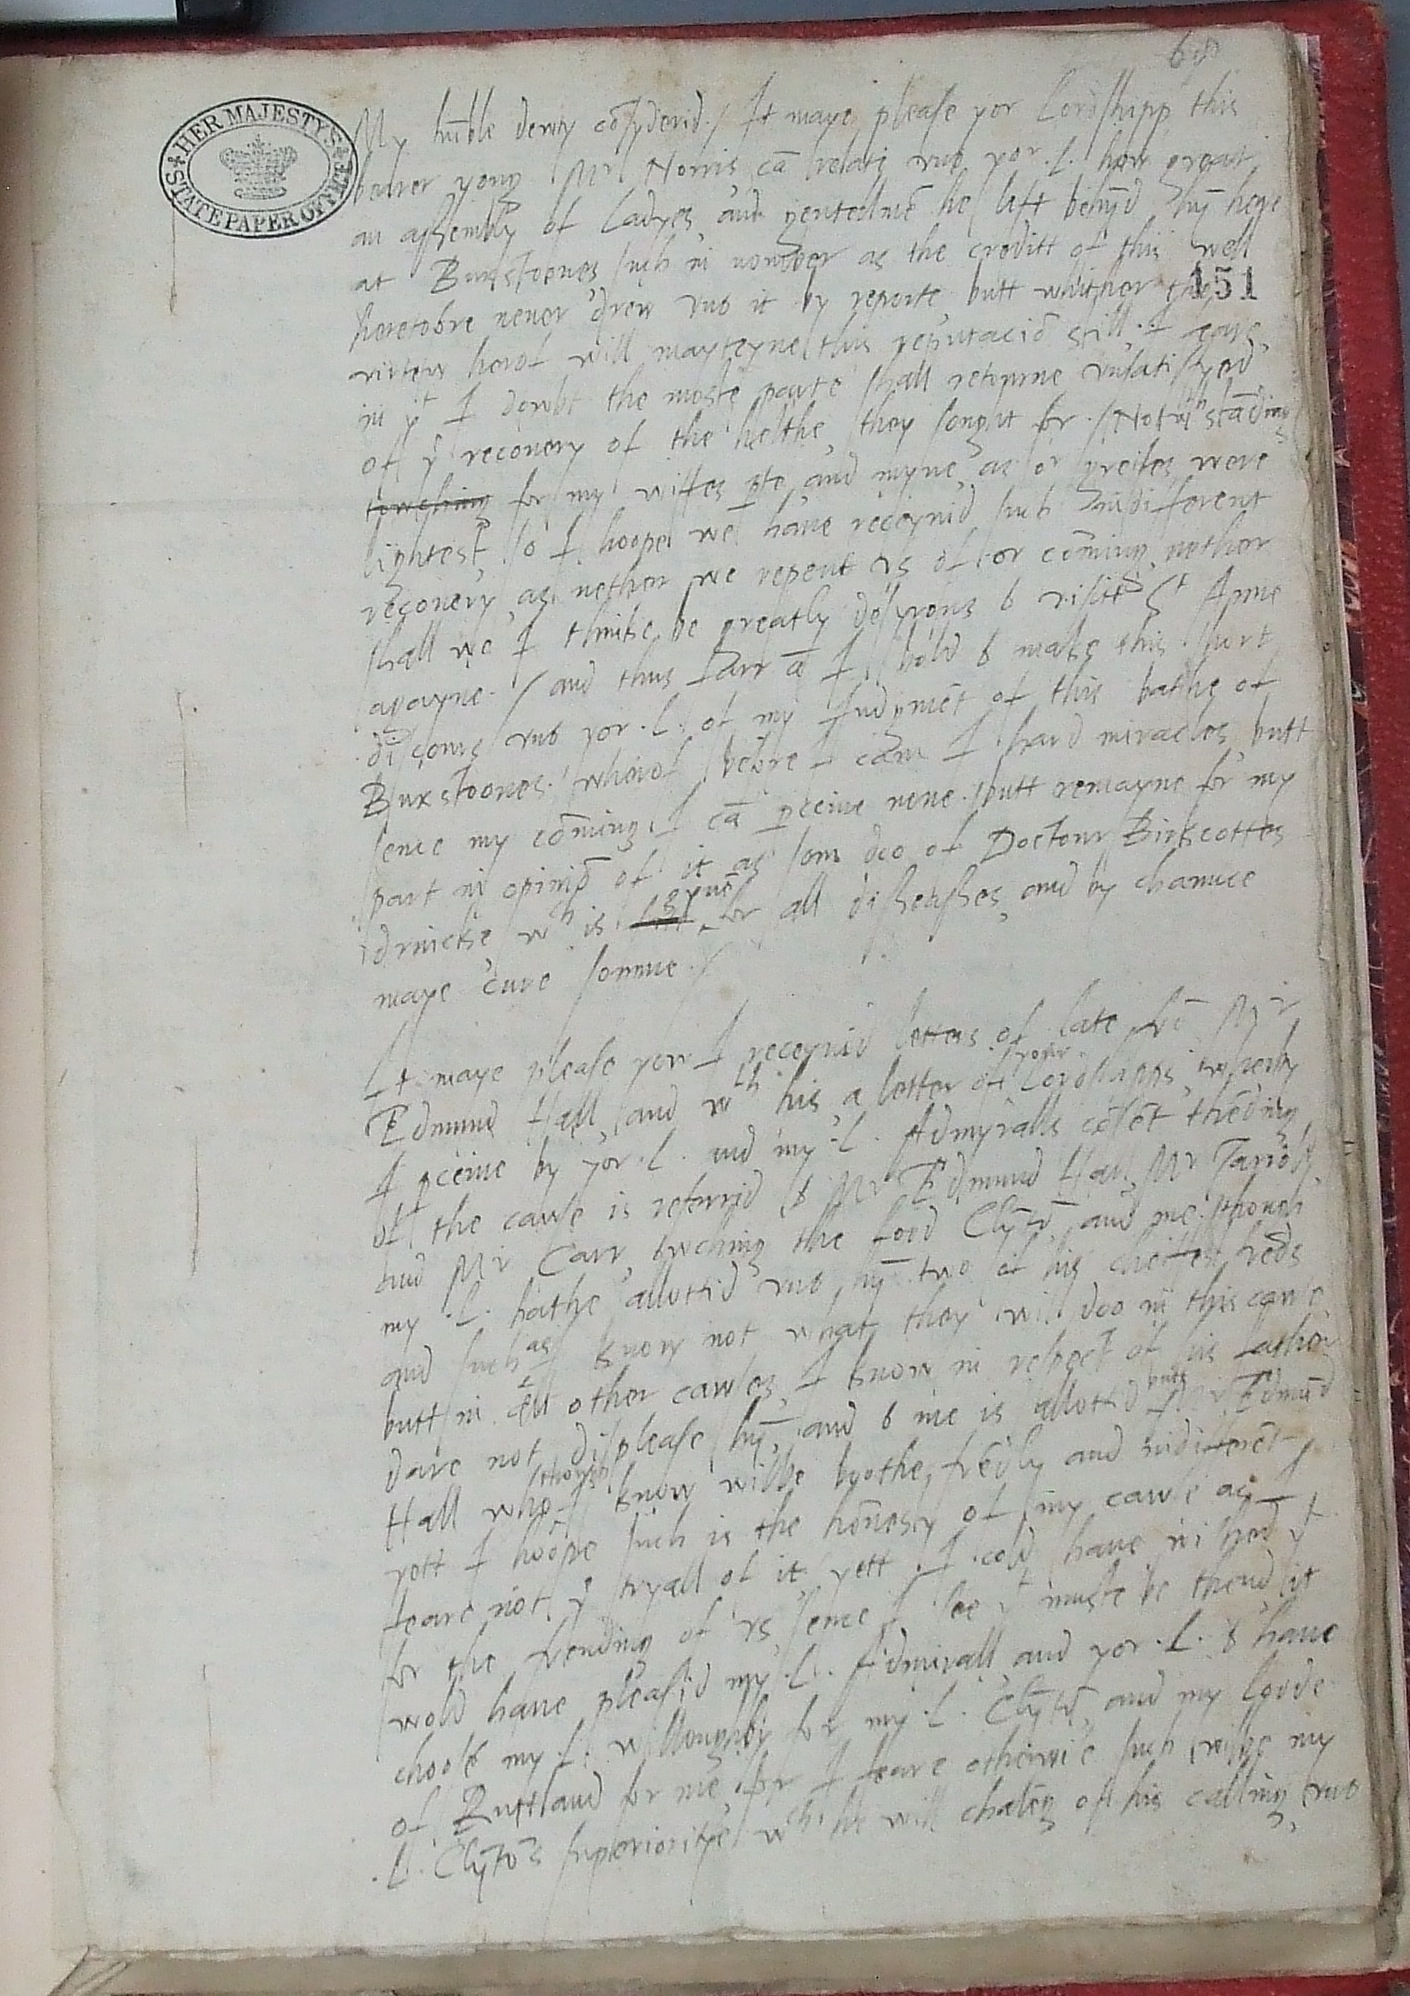 68
HER MAJESTY'S STATE PAPER OFFICE
My hūble dewty cōsyderid / It maye please yor Lordshipp this
bearer yong Mr Norris cā relate vnto yor .L. how great
an assembly of Ladyes and gentellmē he left behȳd hȳ here
at Buxstoones such in nomber as the creditt of this well
heretofore neuer drew vnto it by reporte butt whither the
151
virtew herof will mayteyne this reputaciō still I feare
in yt I dowbt the moste parte shall returne vnsatisfyed
of ye recouery of the helthe they sought for / Notwthstāding
towching for my wiffes pte and myne as or greifes were
lightest so I hoope we haue receyuid such indifferent
recouery as nether we repent vs of or cōming nether
shall we I thinke be greatly desyrous to visite St Anne
agayne / and thus farr ā I bold to make this short
discours vnto yor .L. of my Iudgmēt of this bathe of
Buxstoones wherof before I cam I hard miracles butt
sence my cōming I cā pceiue none / butt remayne for my
part in opiniō of it as som doo of Doctour Birkcottes
drincke wch is gyuē for all dissheasses and by chaunce
maye cure somme /
It maye please yow I receyuid letters of late frō Mr
Edmund Hall and wth his a letter of your Lordshipps wherby
I pceiue by yor .L. and my .L. Admyralls cōsēt thēding
of the cawse is referrid to Mr Edmund Hall Mr
and Mr Carr towching the lord Clȳtō and me though
my .L. hathe allottid vnto hȳ two of his cheiffest freds
and such as I know not what they will doo in this cawse
butt in all other cawses I know in respect of his father
dare not displease hȳ and to me is allottid butt Mr Edmūd
Hall who though I know wilbe boothe frēdly and indifferēt
yett I hoope such is the honnesty of my cawse as I
feare not ye tryall of it yett I cold haue wished yt
for the frending of vs sence I see yt muste be thend it
wold haue pleasid my .L. Admirall and yor .L. to haue
choose my L. Willoughby for my .L. Clȳtō and my Lorde
of Ruttland for me for I feare otherwise such wilbe my
.L. Clȳtōs superioritye wch he will chalēg of his calling vnto